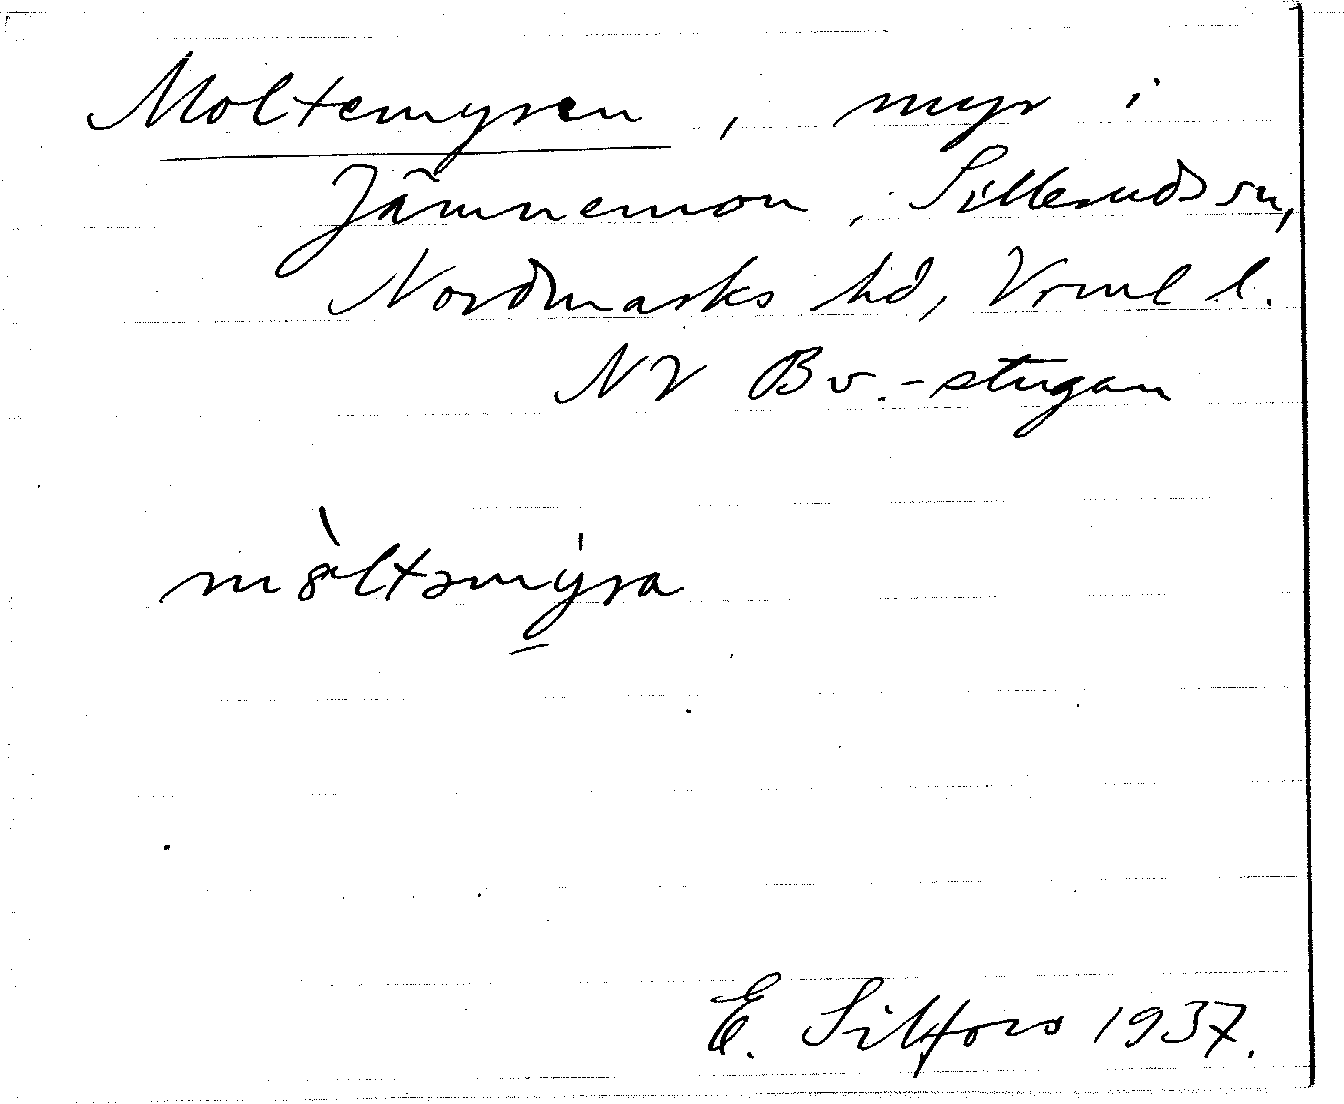 Moltemyren, myr i
Jämnemon, Silleruds sn,
Nordmarks hd, Vrml l.
NV Bv.-stugan
mòltamy̱ra
E. Silfors 1937.